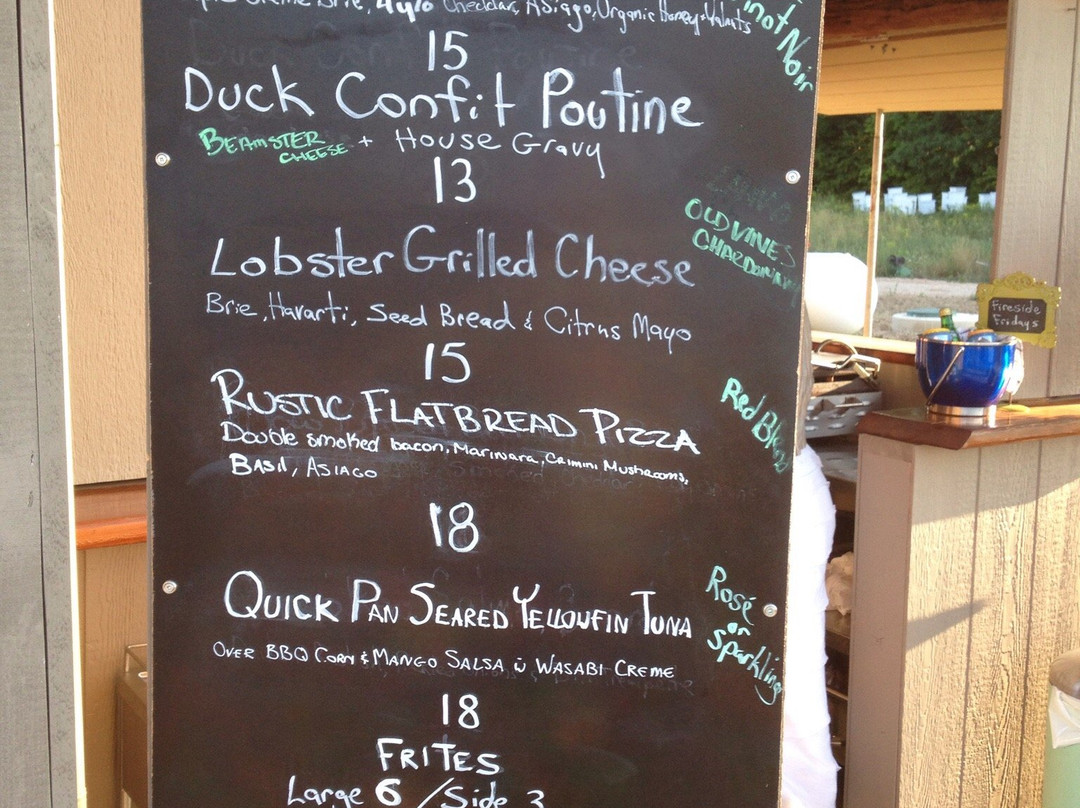 Creme Brie, 4 y/o Cheddar, Asiago, Organic Honey + Walnuts
Pinot Noir
15
Duck Confit Poutine
BEAMSTER CHEESE + House Gravy
13
OLD VINES
CHARDONNAY
Lobster Grilled Cheese
Brie, Havarti, Seed Bread & Citrus Mayo
15
Fireside
Fridays
RUSTIC FLATBREAD PIZZA
Double smoked bacon, Marinara, Crimini Mushrooms,
BASIL, ASIAGO
Red Blend
18
QUICK PAN SEARED YELLOWFIN TUNA
OVER BBQ CORN & MANGO SALSA W WASABI CREME
Rosé
or
Sparkling
18
FRITES
Large 6 / Side 3